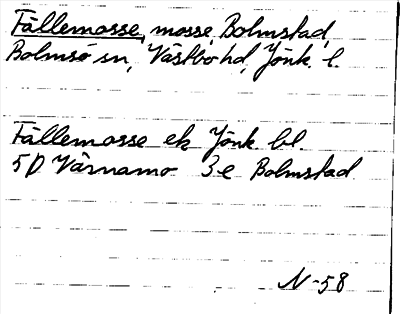 Fällemosse, mosse, Bolmstad,
Bolmsö sn, Västbo hd, Jönk. l.
Fällemosse ek Jönk. bl.
5D Värnamo 3e Bolmstad
N-58